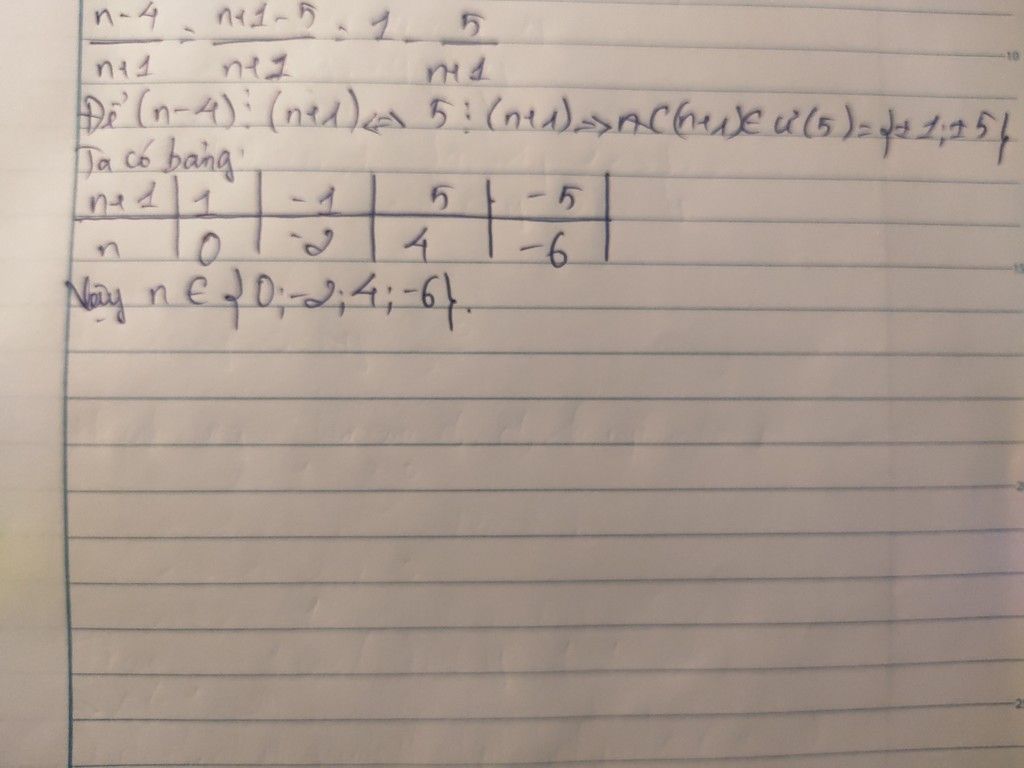 n-4/n+1 = n+1-5/n+1 = 1 - 5/n+1
Để (n-4)⋮(n+1) ⇔ 5⋮(n+1) ⇒ (n+1)∈Ư(5)={±1;±5}
Ta có bảng
n+1 | 1 | -1 | 5 | -5 |
n | 0 | -2 | 4 | -6
Vậy n ∈ {0;-2;4;-6}.
10
15
2
25